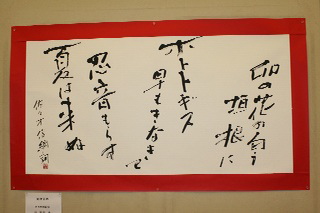 卯の花の匂う
垣根に
ホトトギス
早もきなきて
忍音もらす
夏は来ぬ
佐々木信綱詞